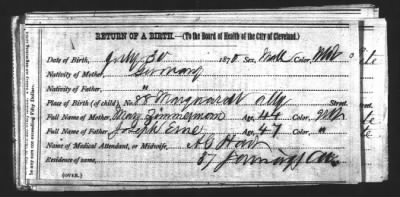 RETURN OF A BIRTH.—(To the Board of Health of the City of Cleveland.)
Date of Birth, July 30 1870 Sex, Male Color,
Nativity of Mother, Germany
Nativity of Father, "
Place of Birth (of child) No. 88 Marquardt ally Street.
Full Name of Mother, Mary Zimmermon Age, 44 Color,
Full Name of Father Joseph Erne Age, 47 Color, "
Name of Medical Attendant, or Midwife,
Residence of name, 87 Jennings Ave
(OVER.)